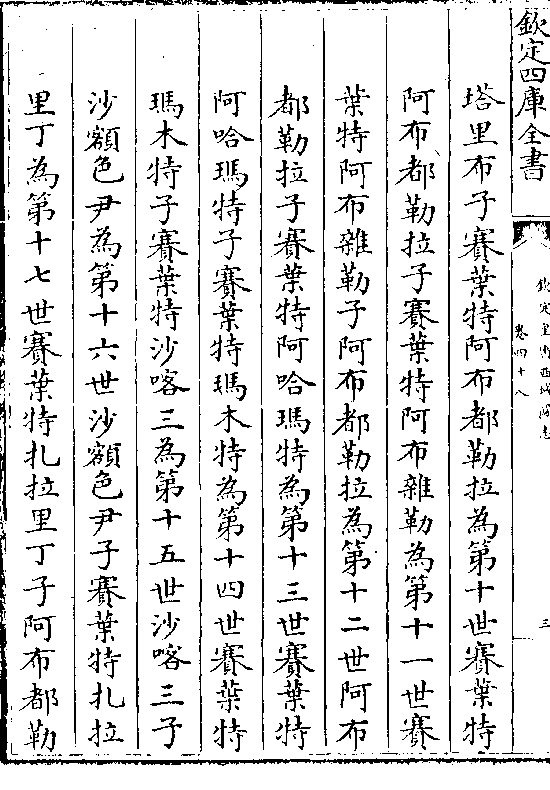 欽定四庫全書
欽定皇輿西域圖志
卷四十八
三
塔里布子賽葉特阿布都勒拉為第十世賽葉特
阿布都勒拉子賽葉特阿布雜勒為第十一世賽
葉特阿布雜勒子阿布都勒拉為第十二世阿布
都勒拉子賽葉特阿哈瑪特為第十三世賽葉特
阿哈瑪特子賽葉特瑪木特為第十四世賽葉特
瑪木特子賽葉特沙喀三為第十五世沙喀三子
沙額色尹為第十六世沙額色尹子賽葉特扎拉
里丁為第十七世賽葉特扎拉里丁子阿布都勒